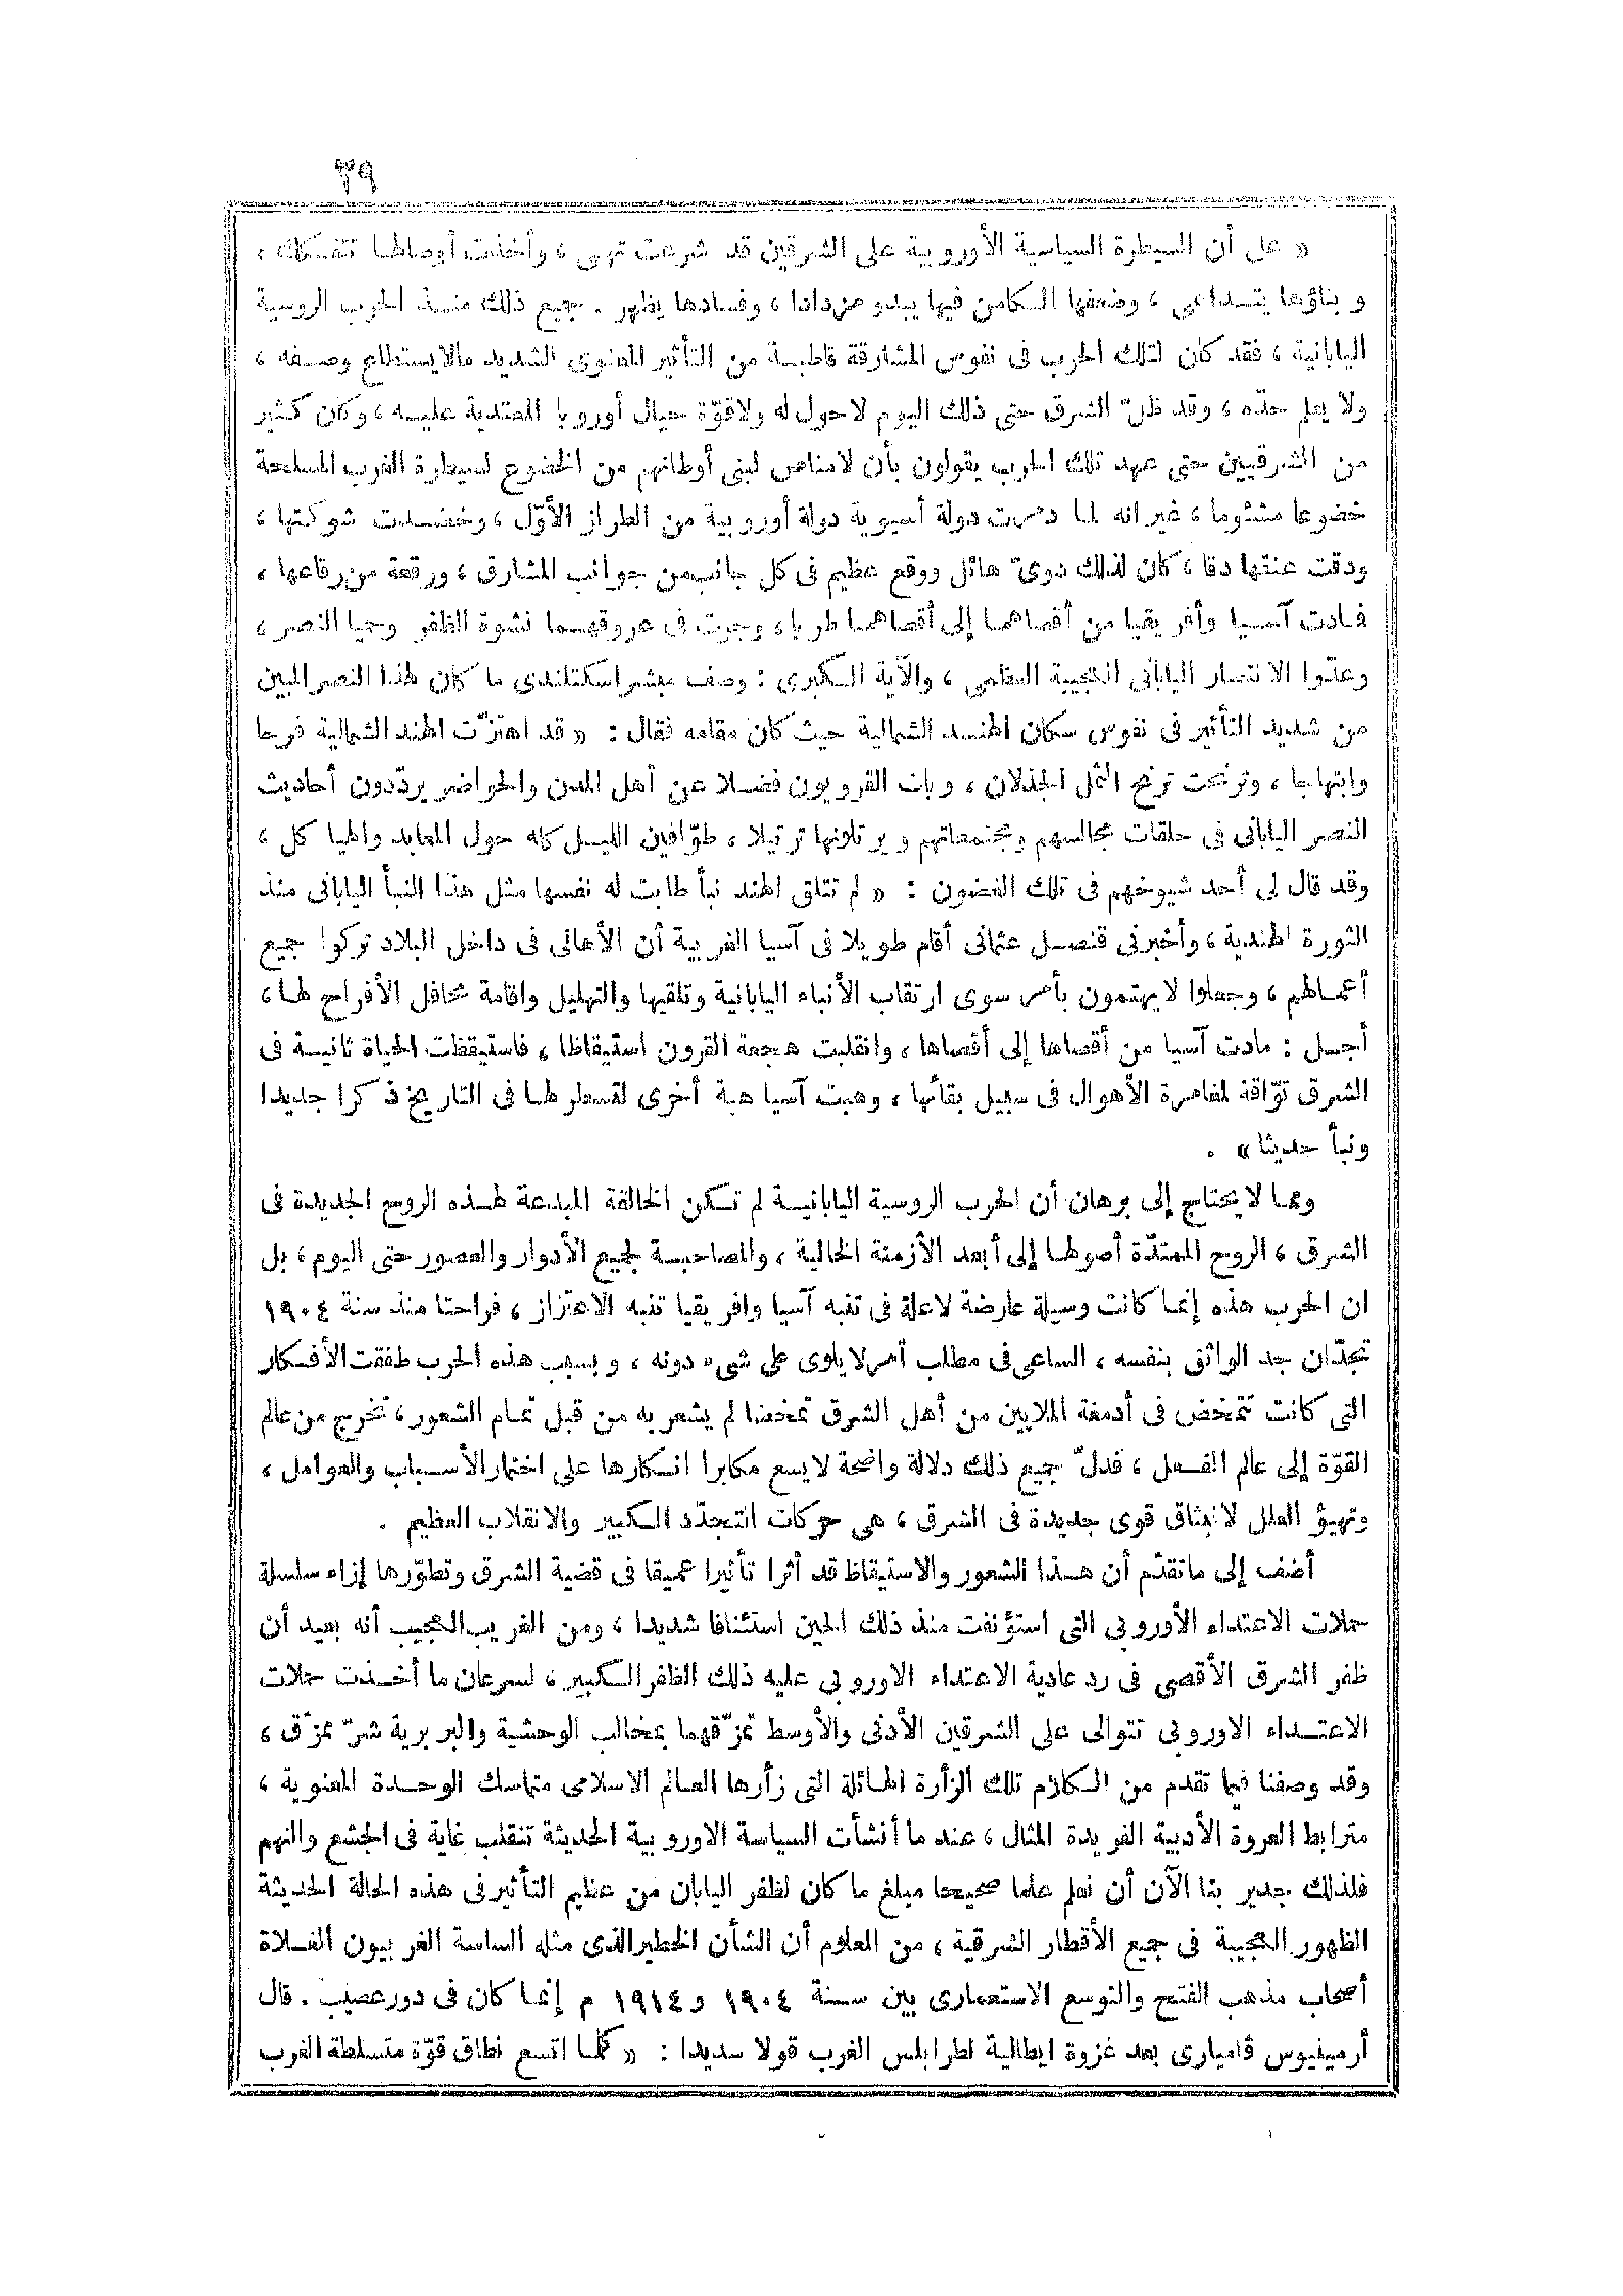 ٣٩
« على أن السيطرة السياسية الأوروبية على الشرقين قد شرعت تهى ، وأخذت أوصالها تتفكك ،
وبناؤها يتداعى ، وضعفها الكامن فيها يبدو مزدادا ، وفسادها يظهر . جميع ذلك منذ الحرب الروسية
اليابانية ، فقد كان لتلك الحرب فى نفوس المشارقة قاطبة من التأثير المعنوى الشديد مالايستطاع وصفه ،
ولا يعلم حدّه ، وقد ظلّ الشرق حتى ذلك اليوم لاحول له ولاقوّة حيال أوروبا المعتدية عليه ، وكان كثير
من الشرقيين حتى عهد تلك الحرب يقولون بأن لامناص لبنى أوطانهم من الخضوع لسيطرة الغرب المسلحة
خضوعا مشئوما ، غير انه لما دمرت دولة أسيوية دولة أوروبية من الطراز الأوّل ، وخضدت شوكتها ،
ودقت عنقها دقا ، كان لذلك دوىّ هائل ووقع عظيم فى كل جانب من جوانب المشارق ، ورقعة من رقاعها ،
فمادت آسيا وأفريقيا من أقصاهما إلى أقصاهما طربا ، وجرت فى عروقهما نشوة الظفر وحميا النصر ،
وعدّوا الانتصار اليابانى العجيبة العظمى ، والآية الكبرى : وصف مبشر اسكتلندى ما كان لهذا النصر المبين
من شديد التأثير فى نفوس سكان الهند الشمالية حيث كان مقامه فقال : « قد اهتزّت الهند الشمالية فرحا
وابتهاجا ، وترنحت ترنح الثمل الجذلان ، وبات القرويون فضلا عن أهل المدن والحواضر يردّدون أحاديث
النصر اليابانى فى حلقات مجالسهم ومجتمعاتهم ويرتلونها ترتيلا ، طوّافين الليل كله حول المعابد والهيا كل ،
وقد قال لى أحد شيوخهم فى تلك الغضون : « لم تتلق الهند نبأ طابت له نفسها مثل هذا النبأ اليابانى منذ
الثورة الهندية ، وأخبرنى قنصل عثمانى أقام طويلا فى آسيا الغربية أن الأهالى فى داخل البلاد تركوا جميع
أعمالهم ، وجعلوا لايهتمون بأمر سوى ارتقاب الأنباء اليابانية وتلقيها والتهليل واقامة محافل الأفراح لها ،
أجل : مادت آسيا من أقصاها إلى أقصاها ، وانقلبت هجعة القرون استيقاظا ، فاستيقظت الحياة ثانية فى
الشرق توّاقة لمغامرة الأهوال فى سبيل بقائها ، وهبت آسيا هبة أخرى لتسطر لها فى التاريخ ذكرا جديدا
ونبأ حديثا » .
ومما لايحتاج إلى برهان أن الحرب الروسية اليابانية لم تكن الخالقة المبدعة لهذه الروح الجديدة فى
الشرق ، الروح الممتدّة أصولها إلى أبعد الأزمنة الخالية ، والمصاحبة لجميع الأدوار والعصور حتى اليوم ، بل
ان الحرب هذه إنما كانت وسيلة عارضة لاعلة فى تنبه آسيا وافريقيا تنبه الاعتزاز ، فراحتا منذ سنة ١٩٠٤
تجدّان جد الواثق بنفسه ، الساعى فى مطلب أمر لا يلوى على شىء دونه ، وبسبب هذه الحرب طفقت الأفكار
التى كانت تتمخض فى أدمغة الملايين من أهل الشرق تمخضا لم يشعر به من قبل تمام الشعور ، تخرج من عالم
القوّة إلى عالم الفعل ، فدلّ جميع ذلك دلالة واضحة لايسع مكابرا انكارها على اختمار الأسباب والعوامل ،
وتهيؤ العلل لانبثاق قوى جديدة فى الشرق ، هى حركات التجدّد الكبير والانقلاب العظيم .
أضف إلى ماتقدّم أن هذا الشعور والاستيقاظ قد أثرا تأثيرا عميقا فى قضية الشرق وتطوّرها إزاء سلسلة
حملات الاعتداء الأوروبى التى استؤنفت منذ ذلك الحين استئنافا شديدا ، ومن الغريب العجيب أنه بعيد أن
ظفر الشرق الأقصى فى رد عادية الاعتداء الاوروبى عليه ذلك الظفر الكبير ، لسرعان ما أخذت حملات
الاعتداء الاوروبى تتوالى على الشرقين الأدنى والأوسط تمزّقهما بمخالب الوحشية والبربرية شرّ ممزّق ،
وقد وصفنا فيما تقدم من الكلام تلك الزأرة الهائلة التى زأرها العالم الاسلامى متماسك الوحدة المعنوية ،
مترابط العروة الأدبية الفريدة المثال ، عند ما أنشأت السياسة الاوروبية الحديثة تنقلب غاية فى الجشع والنهم
فلذلك جدير بنا الآن أن نعلم علما صحيحا مبلغ ما كان لظفر اليابان من عظيم التأثير فى هذه الحالة الحديثة
الظهور العجيبة فى جميع الأقطار الشرقية ، من المعلوم أن الشأن الخطير الذى مثله الساسة الغربيون الغلاة
أصحاب مذهب الفتح والتوسع الاستعمارى بين سنة ١٩٠٤ و ١٩١٤ م إنما كان فى دور عصيب . قال
أرمينيوس ڤامبارى بعد غزوة ايطالية لطرابلس الغرب قولا سديدا : « كلما اتسع نطاق قوّة متسلطة الغرب